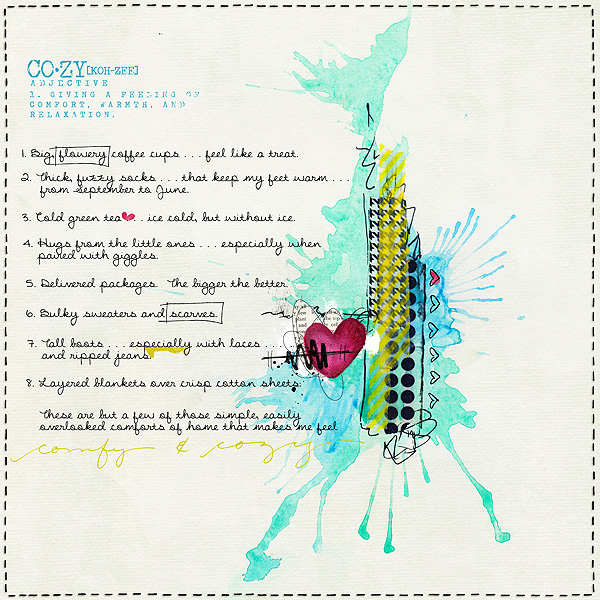 CO•ZY [KOH-ZEE]
ADJECTIVE
1. GIVING A FEELING OF
COMFORT, WARMTH, AND
RELAXATION.
1. Big, flowery coffee cups . . . feel like a treat.
2. Thick, fuzzy socks . . . that keep my feet warm . . .
from September to June.
3. Cold green tea . . . ice cold, but without ice.
4. Hugs from the little ones . . . especially when
paired with giggles.
5. Delivered packages. The bigger the better.
6. Bulky sweaters and scarves.
7. Tall boots . . . especially with laces . . .
and ripped jeans.
8. Layered blankets over crisp cotton sheets.
These are but a few of those simple, easily
overlooked comforts of home that makes me feel
comfy & cozy